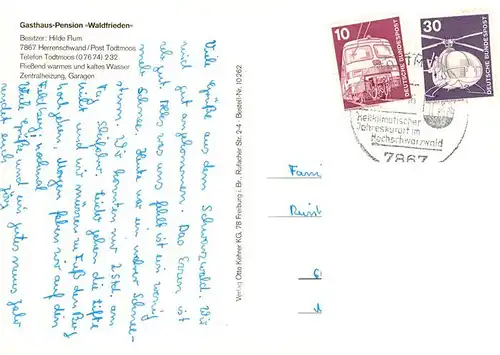 Gasthaus-Pension »Waldfrieden«
Besitzer: Hilde Flum
7867 Herrenschwand/Post Todtmoos
Telefon Todtmoos (07674) 232
Fließend warmes und kaltes Wasser
Zentralheizung, Garagen
Viele Grüße aus dem Schwarzwald. Wir
sind gut angekommen. Das Essen ist
sehr gut. Was uns fehlt ist ein wenig
mehr Schnee. Heute war ein wahrer Schnee-
sturm. Wir konnten nur 2 Std. am
Skifahren. Leider gehen die Lifte
nicht und wir müssen zu Fuß den Berg
hoch gehen. Morgen fahren wir auf den
Feldberg. nochmal
viele Grüße und ein gutes neues Jahr
wünscht euch Jörg
Verlag Otto Kehrer KG, 78 Freiburg i. Br., Rufacher Str. 2-4 · Bestell Nr. 10 262
10
DEUTSCHE BUNDESPOST
30
DEUTSCHE BUNDESPOST
Heilklimatischer
Jahreskurort im
Hochschwarzwald
7867
Fam